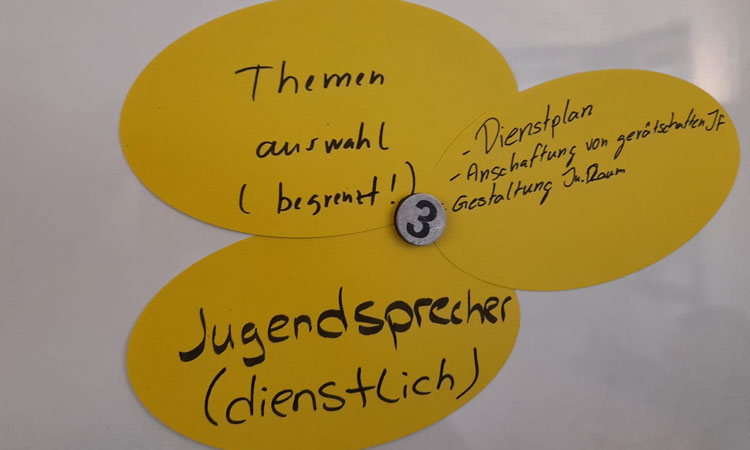 Themen
auswahl
(begrenzt!)
- Dienstplan
- Anschaftung von gerätschaften JF
- Gestaltung Ju.Raum
3
Jugendsprecher
(dienstlich)